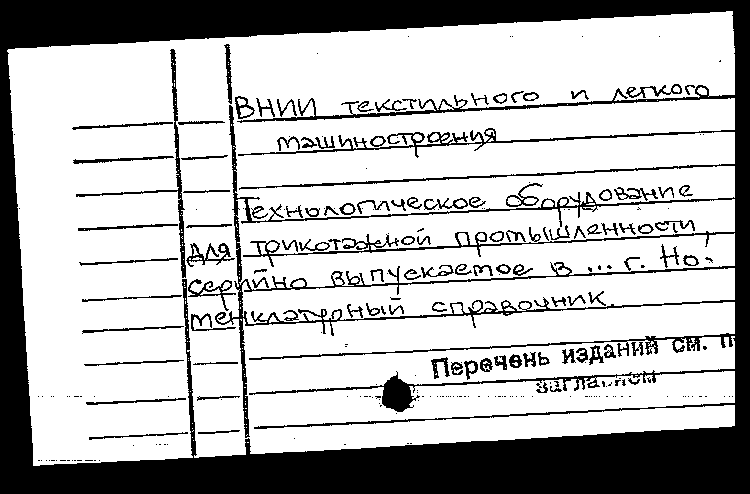 ВНИИ текстильного и легкого
машиностроения
Технологическое оборудование
для трикотажной промышленности,
серийно выпускаемое в ... г. Но-
менклатурный справочник.
Перечень изданий см. п
заглавием